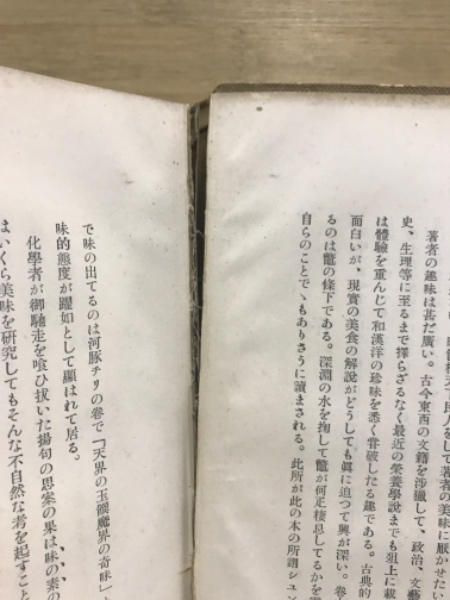 民人をして著者の美味に厭かせたい
著者の趣味は甚だ廣い。古今東西の文籍を渉獵して、政治、文藝
史、生理等に至るまで擇らざるなく最近の榮養學說までも俎上に載
は體驗を重んじて和漢洋の珍味を悉く嘗破したる趣である。古典的
面白いが、現實の美食の解說がどうしても眞に迫つて興が深い。卷
るのは鼈の條下である。深淵の水を掬して鼈が何疋棲息してるかを
自らのことでゝもありさうに讀まされる。此所が此の本の所謂シユン
で味の出てるのは河豚チリの卷で『天界の玉饌魔界の奇味』
味的態度が躍如として顯はれて居る。
化學者が御馳走を喰ひ拔いた揚句の思案の果は味の素の
はいくら美味を硏究してもそんな不自然な考を起すこと